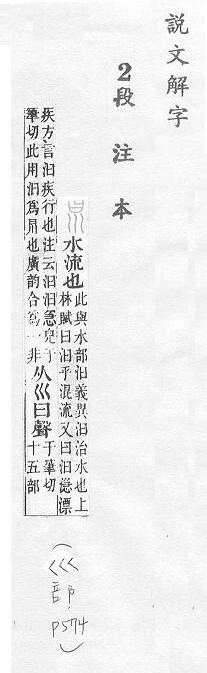 說文解字
2段注本
水流也
此與水部汩義異汩治水也上
林賦曰汩乎混流又曰汩㴔漂
疾方言汩疾行也注云汩汩急皃于
筆切此用汩為㫕也廣韵合為一非
从巛曰聲
于筆切
十五部
(巛部 P574)